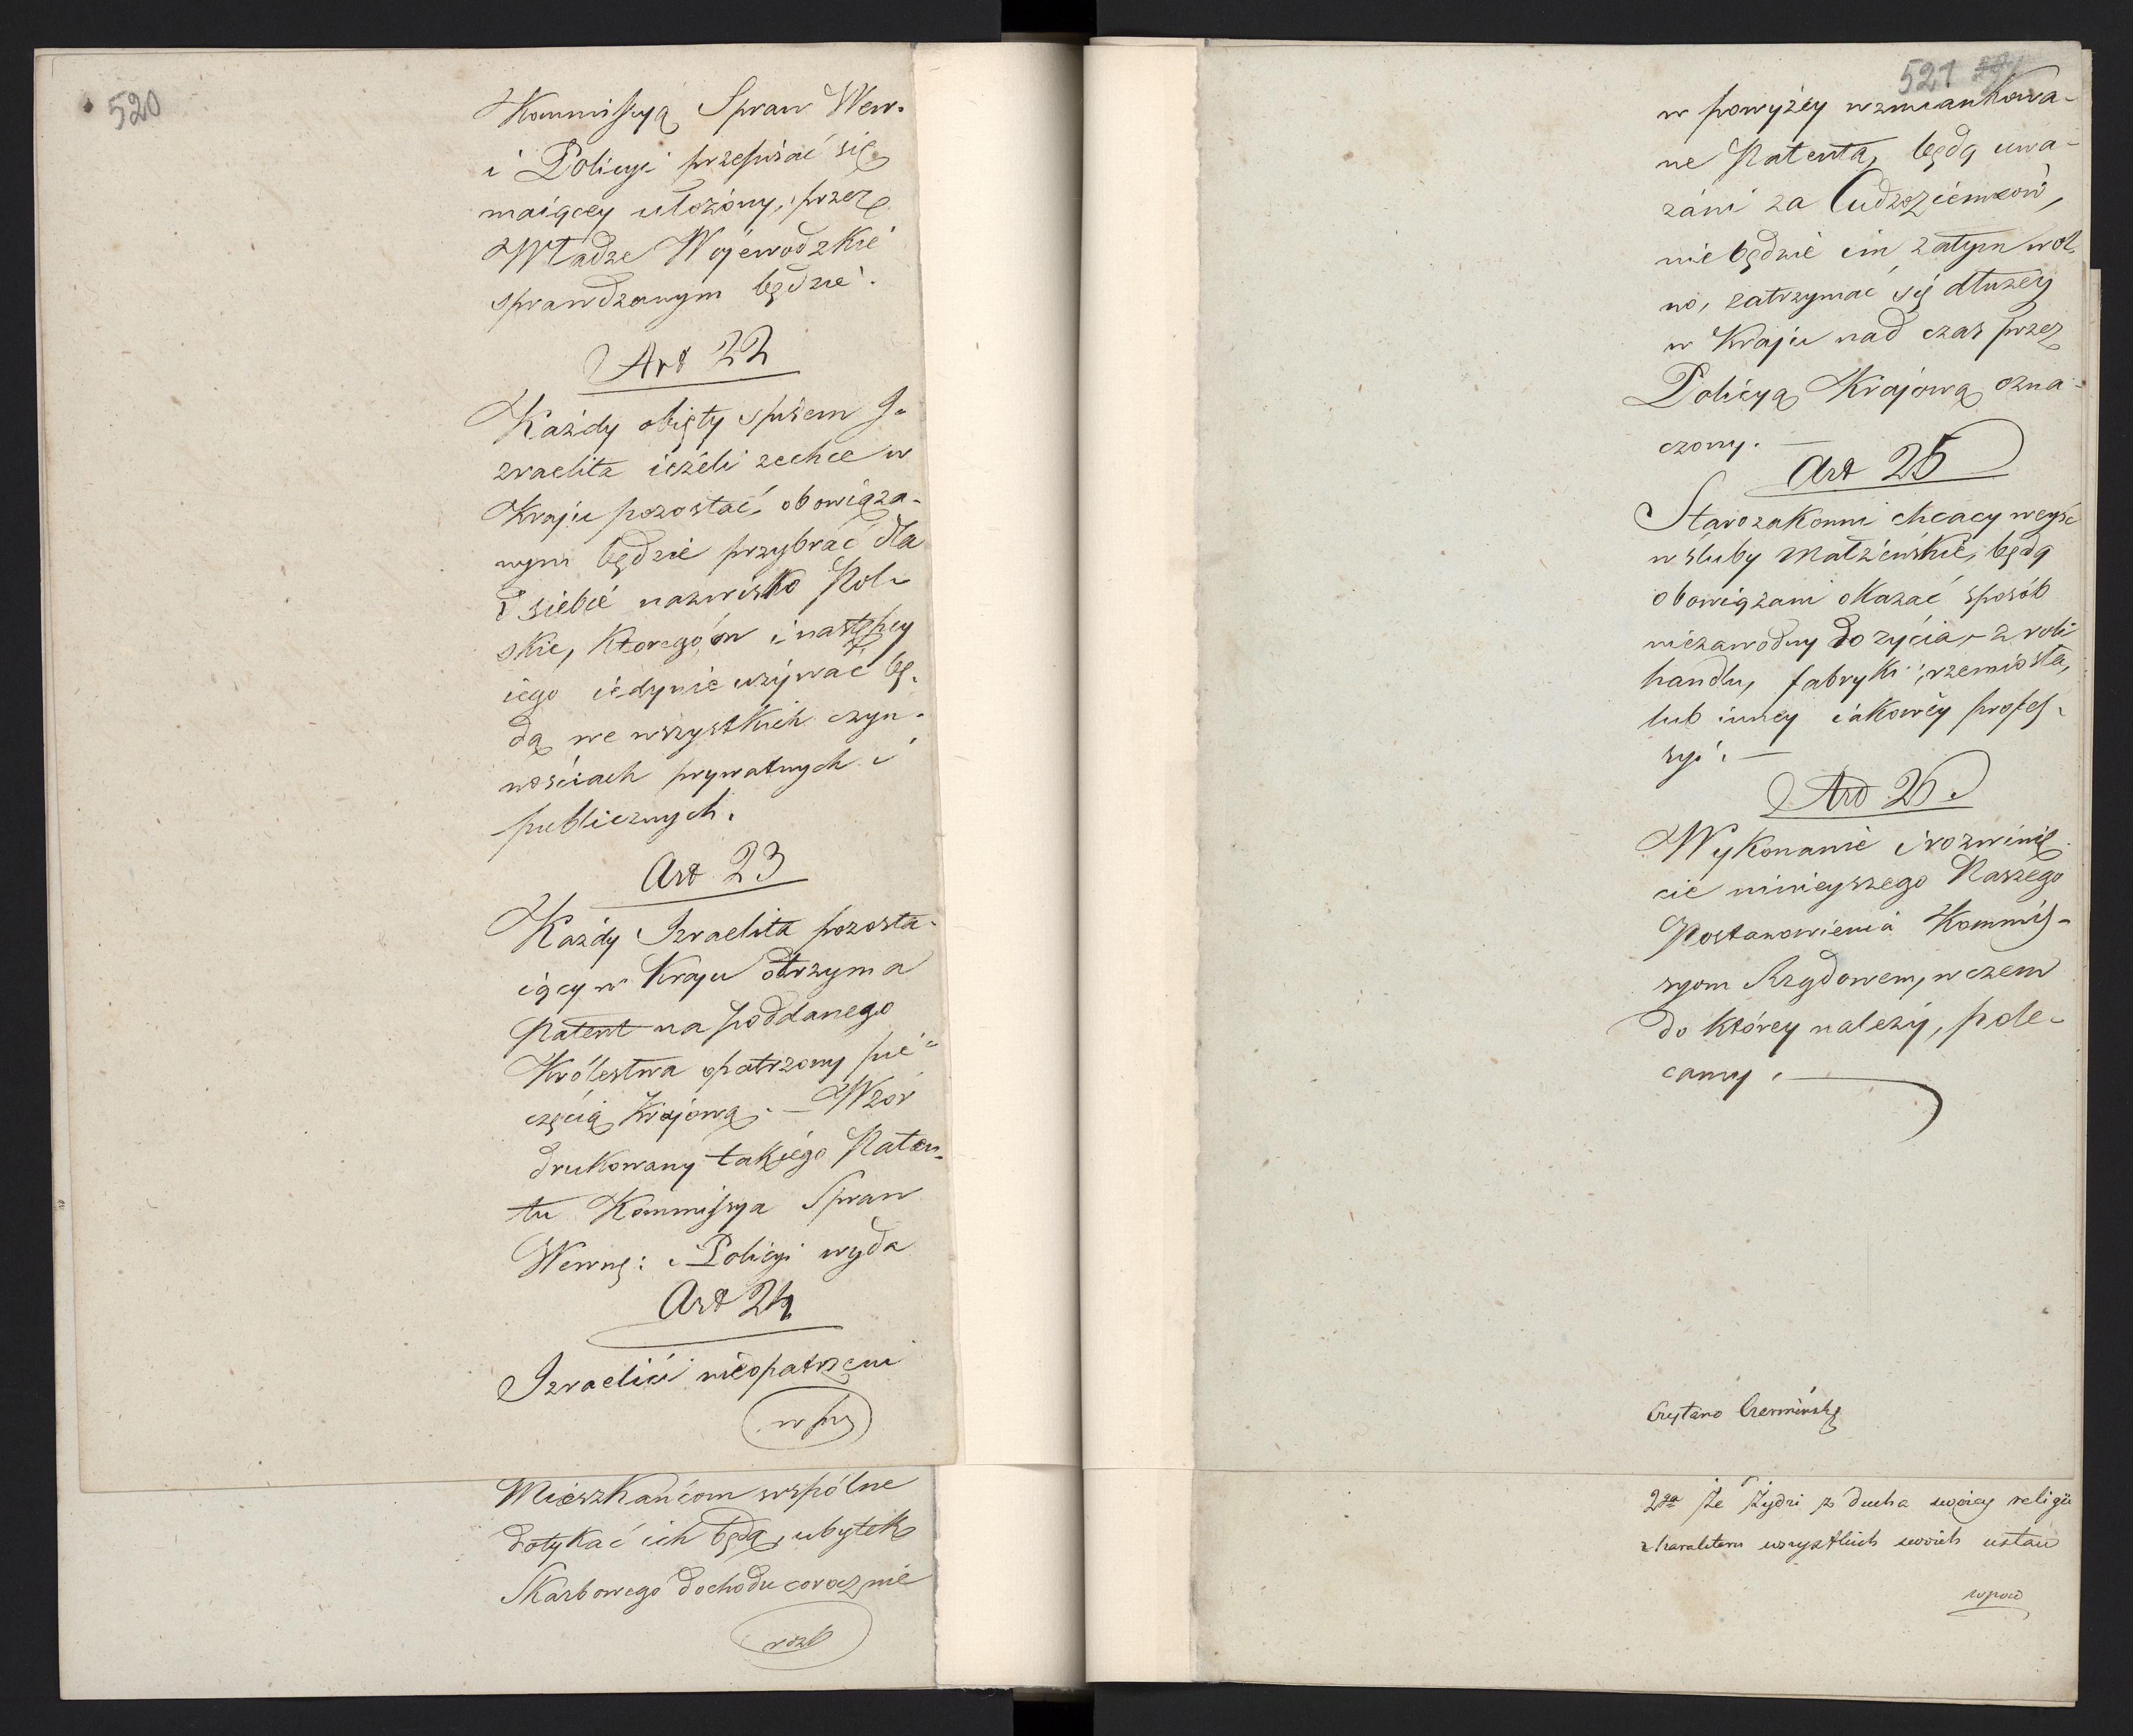 520
Kommissyą Spraw Wew.
i Policyi przepisać się
maiącey ułożony, przez
Władze Wojewodzkie
sprawdzanym będzie.
Art 22
Każdy obięty spisem I-
zraelita ieżeli zechce w
Kraju pozostać, obowiąza-
nym będzie przybrać dla
siebie nazwisko Pol-
skie, którego on i następcy
iego iedynie używać bę-
dą we wszystkich czyn-
nościach prywatnych i
publicznych.
Art 23
Każdy Izraelita pozosta-
iący w Kraju otrzyma
Patent na poddanego
Królestwa opatrzony pie-
częcią Krajową. — Wzór
drukowany takiego Paten-
tu Kommissya Spraw
Wewnę: i Policyi wyda
Art 24
Izraelici nieopatrzeni
w po
Mieszkańcom wspólne
dotykać ich będą, ubytek
Skarbowego dochodu coraz nie
rozb
521
w powyżey wzmiankowa-
ne Patenta, będą uwa-
żani za Cudzoziemców,
nie będzie im zatym wol-
no, zatrzymać się dłużey
w Kraju nad czas przez
Policyą Krajową ozna-
czony. —
Art 25
Starozakonni chcący weyść
w śluby małżeńskie, będą
obowiązani okazać sposób
niezawodny do życia, z roli
handlu, fabryki, rzemiosła,
lub inney iakowey profes-
syi. —
Art 26.
Wykonanie i rozwinię-
cie ninieyszego Naszego
Postanowienia Kommis-
syom Rządowem, w czem
do którey należy, pole-
camy. —
Czytano Czermiński
2ga Że Żydzi z ducha swoiey religii
z harakteru wszystkich swoich ustaw
wpow